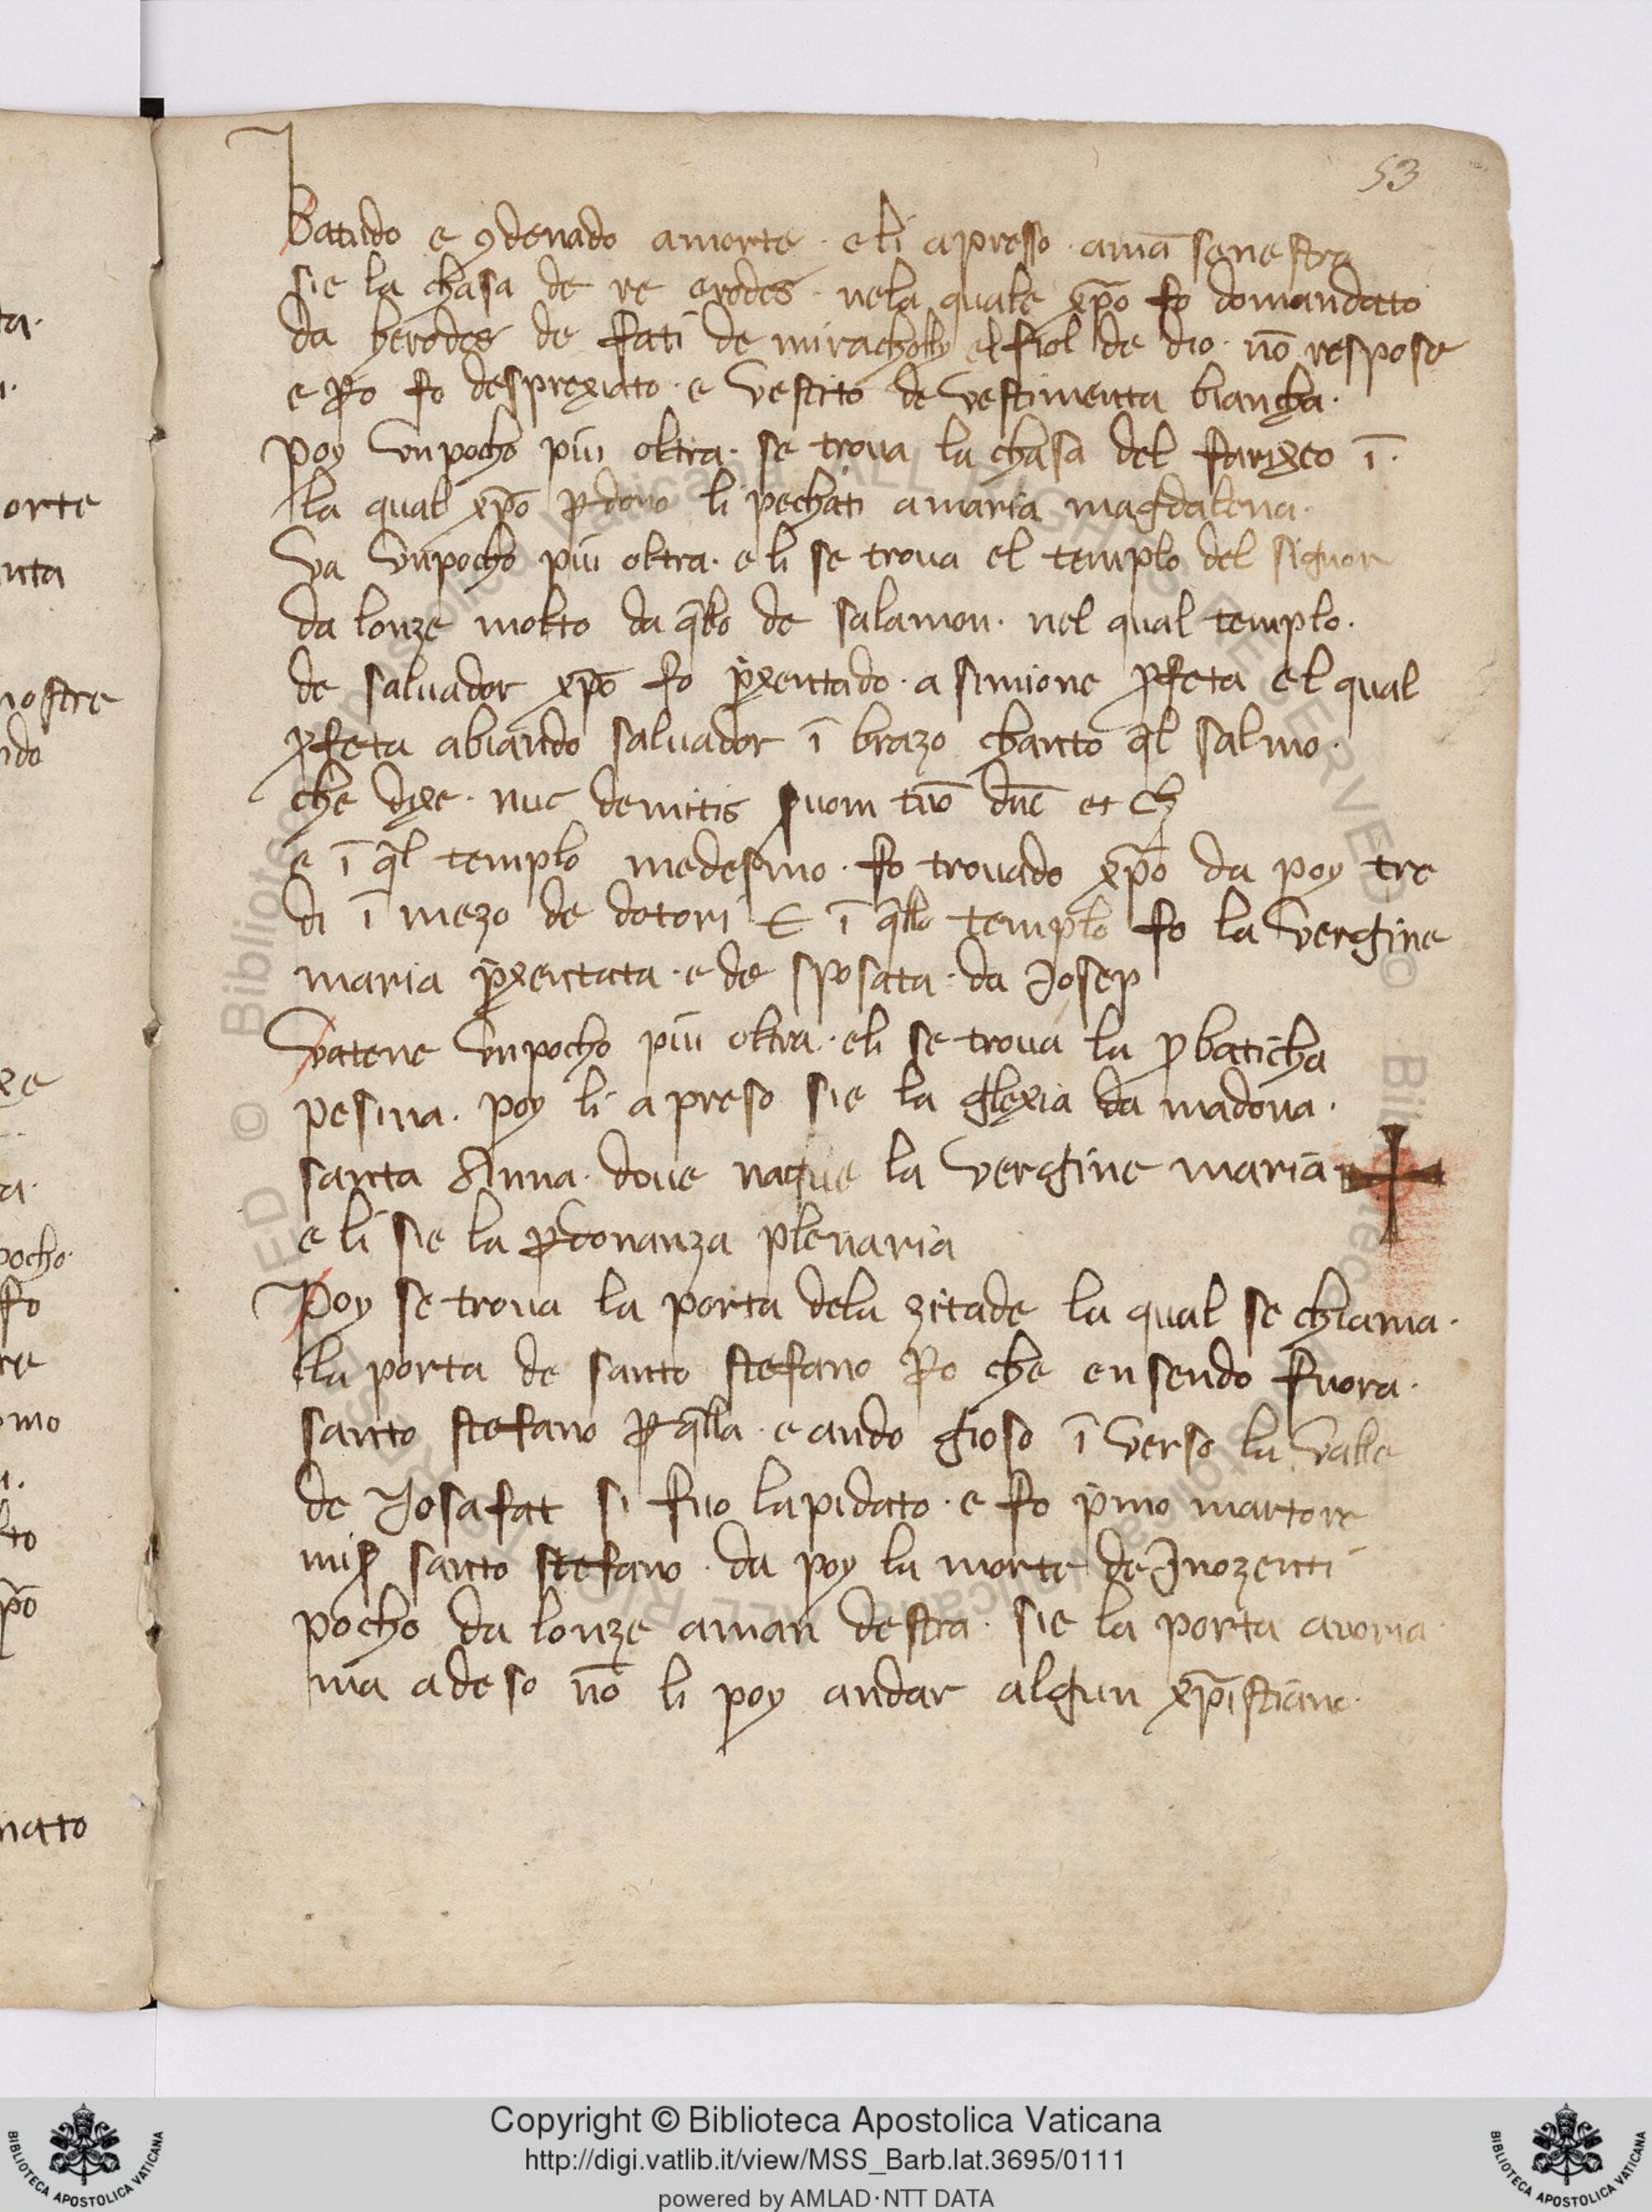 53
Batudo e ꝯdenado amorte · e li apresso · amā senestra
sie la chasa de re erodes · nela quale xp̄o fo domandato
da herodes de fati de miracholly el fiol de dio · nō respose
e ꝑo fo desprexiato · e vestito de vestimenta biancha ·
poy vnpocho piu oltra · se troua la chasa del farixeo ī ·
la qual xp̄o ꝑdono li pechati amaria magdalena ·
Va vnpocho piu oltra · e li se troua el templo del signor
da lonze molto da q̄llo de salamon · nel qual templo ·
de saluador xp̄o fo p̄xentado · a simione ꝓfeta el qual
ꝓfeta abiando saluador ī brazo chanto q̄l salmo ·
che dixe · nuc demitis tuō dn̄e et
e ī q̄l templo medesimo · fo trouado xp̄o da poy tre
di ī mezo de dotori E ī q̄llo templo fo la vergine
maria p̄xentata · e de sposata · da Josep
Vatene vnpocho piu oltra · eli se troua la ꝓbaticha
pesina · poy li apreso sie la glexia da madona ·
santa Anna · doue naque la vergine maria
e li sie la ꝑdonanza plenaria
Poy se troua la porta dela zitade la qual se chiama ·
la porta de santo stefano ꝑo che ensendo fuora ·
santo stefano ꝑ q̄lla · e ando gioso ī verso la valle
de Josafat si fuo lapidato · e fo p̄mo martore
santo stefano · da poy la morte de Jnozenti
pocho da lonze aman destra · sie la porta auoria ·
ma adeso nō li poy andar algun xp̄istiano ·
ta ·
orte
nta
nostre
ndo
xe
a ·
pocho ·
fo
re
omo
lto
p̄o
nato
© Biblioteca Apostolica Vaticana ALL RIGHTS RESERVED
Copyright © Biblioteca Apostolica Vaticana
http://digi.vatlib.it/view/MSS_Barb.lat.3695/0111
powered by AMLAD·NTT DATA
BIBLIOTECA APOSTOLICA VATICANA
BIBLIOTECA APOSTOLICA VATICANA